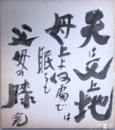 天は父上地
母上よ何處では
眠るも
父母の膝元